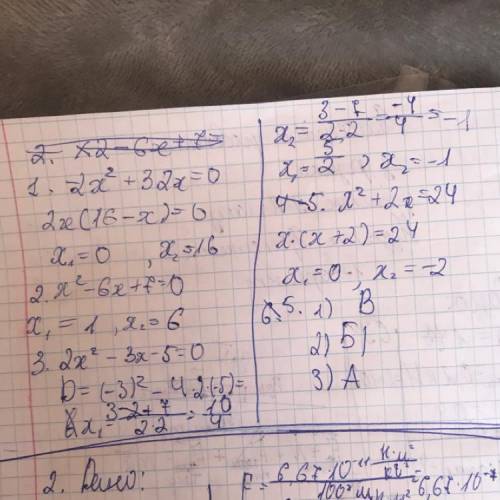 2. x2 - 6x + 7 =
1. -2x² + 32x = 0
2x(16-x) = 0
x₁ = 0 , x₂ = 16
2. x² - 6x + 7 = 0
x₁ = 1 , x₂ = 6
3. 2x² - 3x - 5 = 0
D = (-3)² - 4·2·(-5) =
x₁ = 3-2+7/2·2 = 10/4
x₂ = 3-7/2·2 = -4/4 = -1
x₁ = 5/2 ; x₂ = -1
4-5. x² + 2x = 24
x·(x+2) = 24
x₁ = 0 , x₂ = -2
6. 5. 1) В
2) Б
3) А
2. Дано:
F = 6,67·10⁻¹¹ Н·м²/кг²
6,67·10⁻⁷